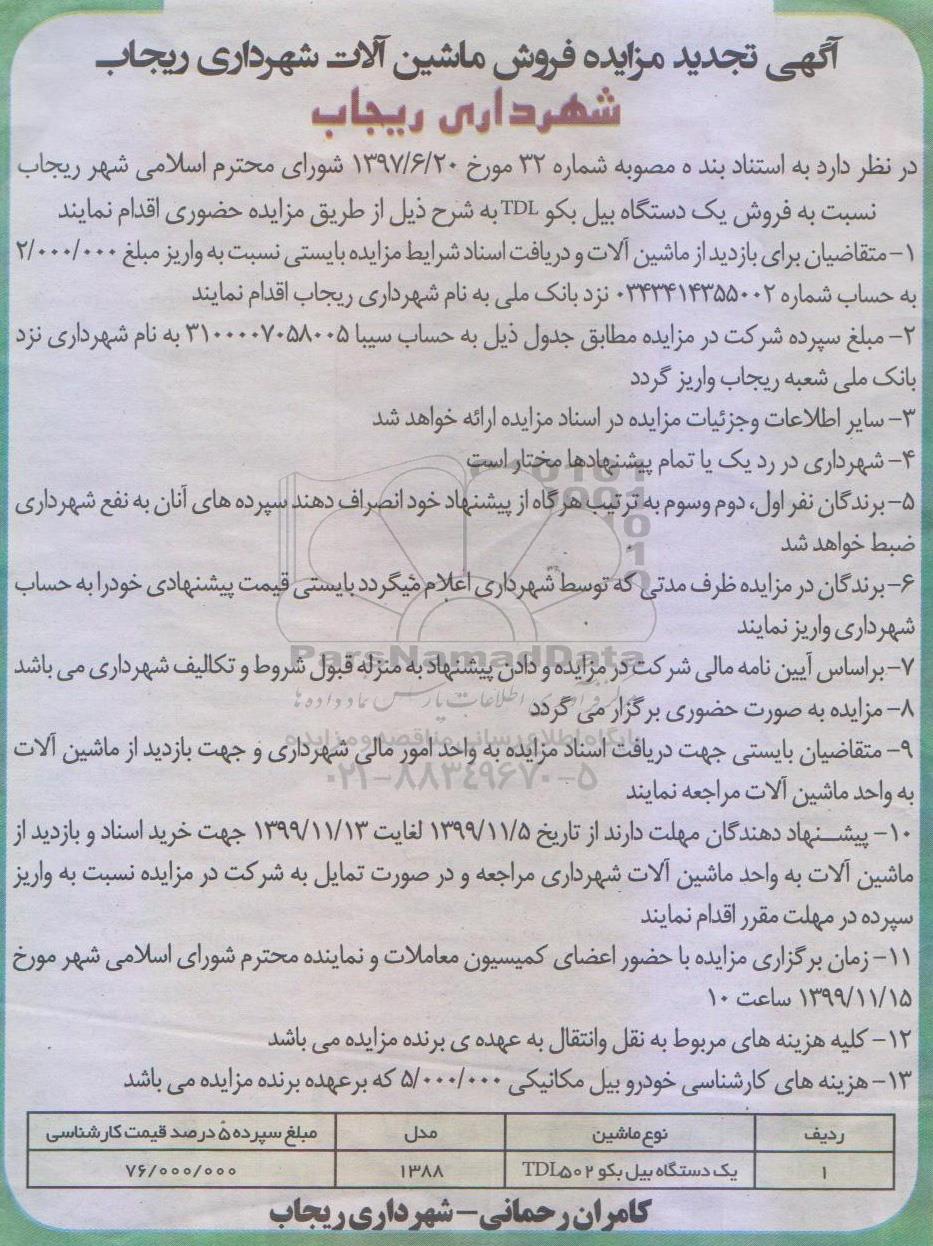 آگهی تجدید مزایده فروش ماشین آلات شهرداری ریجاب
شهرداری ریجاب
در نظر دارد به استناد بند ه مصوبه شماره ۳۲ مورخ ۱۳۹۷/۶/۲۰ شورای محترم اسلامی شهر ریجاب
نسبت به فروش یک دستگاه بیل بکو TDL به شرح ذیل از طریق مزایده حضوری اقدام نمایند
۱- متقاضیان برای بازدید از ماشین آلات و دریافت اسناد شرایط مزایده بایستی نسبت به واریز مبلغ ۲/۰۰۰/۰۰۰
به حساب شماره ۰۳۴۳۴۱۴۳۵۵۰۰۲ نزد بانک ملی به نام شهرداری ریجاب اقدام نمایند
۲- مبلغ سپرده شرکت در مزایده مطابق جدول ذیل به حساب سیبا ۳۱۰۰۰۰۷۰۵۸۰۰۵ به نام شهرداری نزد
بانک ملی شعبه ریجاب واریز گردد
۳- سایر اطلاعات وجزئیات مزایده در اسناد مزایده ارائه خواهد شد
۴- شهرداری در رد یک یا تمام پیشنهادها مختار است
۵- برندگان نفر اول، دوم وسوم به ترتیب هرگاه از پیشنهاد خود انصراف دهند سپرده های آنان به نفع شهرداری
ضبط خواهد شد
۶- برندگان در مزایده ظرف مدتی که توسط شهرداری اعلام میگردد بایستی قیمت پیشنهادی خودرا به حساب
شهرداری واریز نمایند
ParsNamadData
۷- براساس آیین نامه مالی شرکت در مزایده و دادن پیشنهاد به منزله قبول شروط و تکالیف شهرداری می باشد
۸- مزایده به صورت حضوری برگزار می گردد
پایگاه اطلاع رسانی مناقصه و مزایده
۹- متقاضیان بایستی جهت دریافت اسناد مزایده به واحد امور مالی شهرداری و جهت بازدید از ماشین آلات
۰۲۱-۸۸۳۴۹۶۷۰-۵
به واحد ماشین آلات مراجعه نمایند
۱۰- پیشنهاد دهندگان مهلت دارند از تاریخ ۱۳۹۹/۱۱/۵ لغایت ۱۳۹۹/۱۱/۱۳ جهت خرید اسناد و بازدید از
ماشین آلات به واحد ماشین آلات شهرداری مراجعه و در صورت تمایل به شرکت در مزایده نسبت به واریز
سپرده در مهلت مقرر اقدام نمایند
۱۱- زمان برگزاری مزایده با حضور اعضای کمیسیون معاملات و نماینده محترم شورای اسلامی شهر مورخ
۱۳۹۹/۱۱/۱۵ ساعت ۱۰
۱۲- کلیه هزینه های مربوط به نقل وانتقال به عهده ی برنده مزایده می باشد
۱۳- هزینه های کارشناسی خودرو بیل مکانیکی ۵/۰۰۰/۰۰۰ که برعهده برنده مزایده می باشد
ردیف نوع ماشین مدل مبلغ سپرده ۵ درصد قیمت کارشناسی
۱ یک دستگاه بیل بکو TDL۵۰۲ ۱۳۸۸ ۷۶/۰۰۰/۰۰۰
کامران رحمانی- شهرداری ریجاب